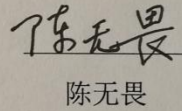 陈无畏
陈无畏